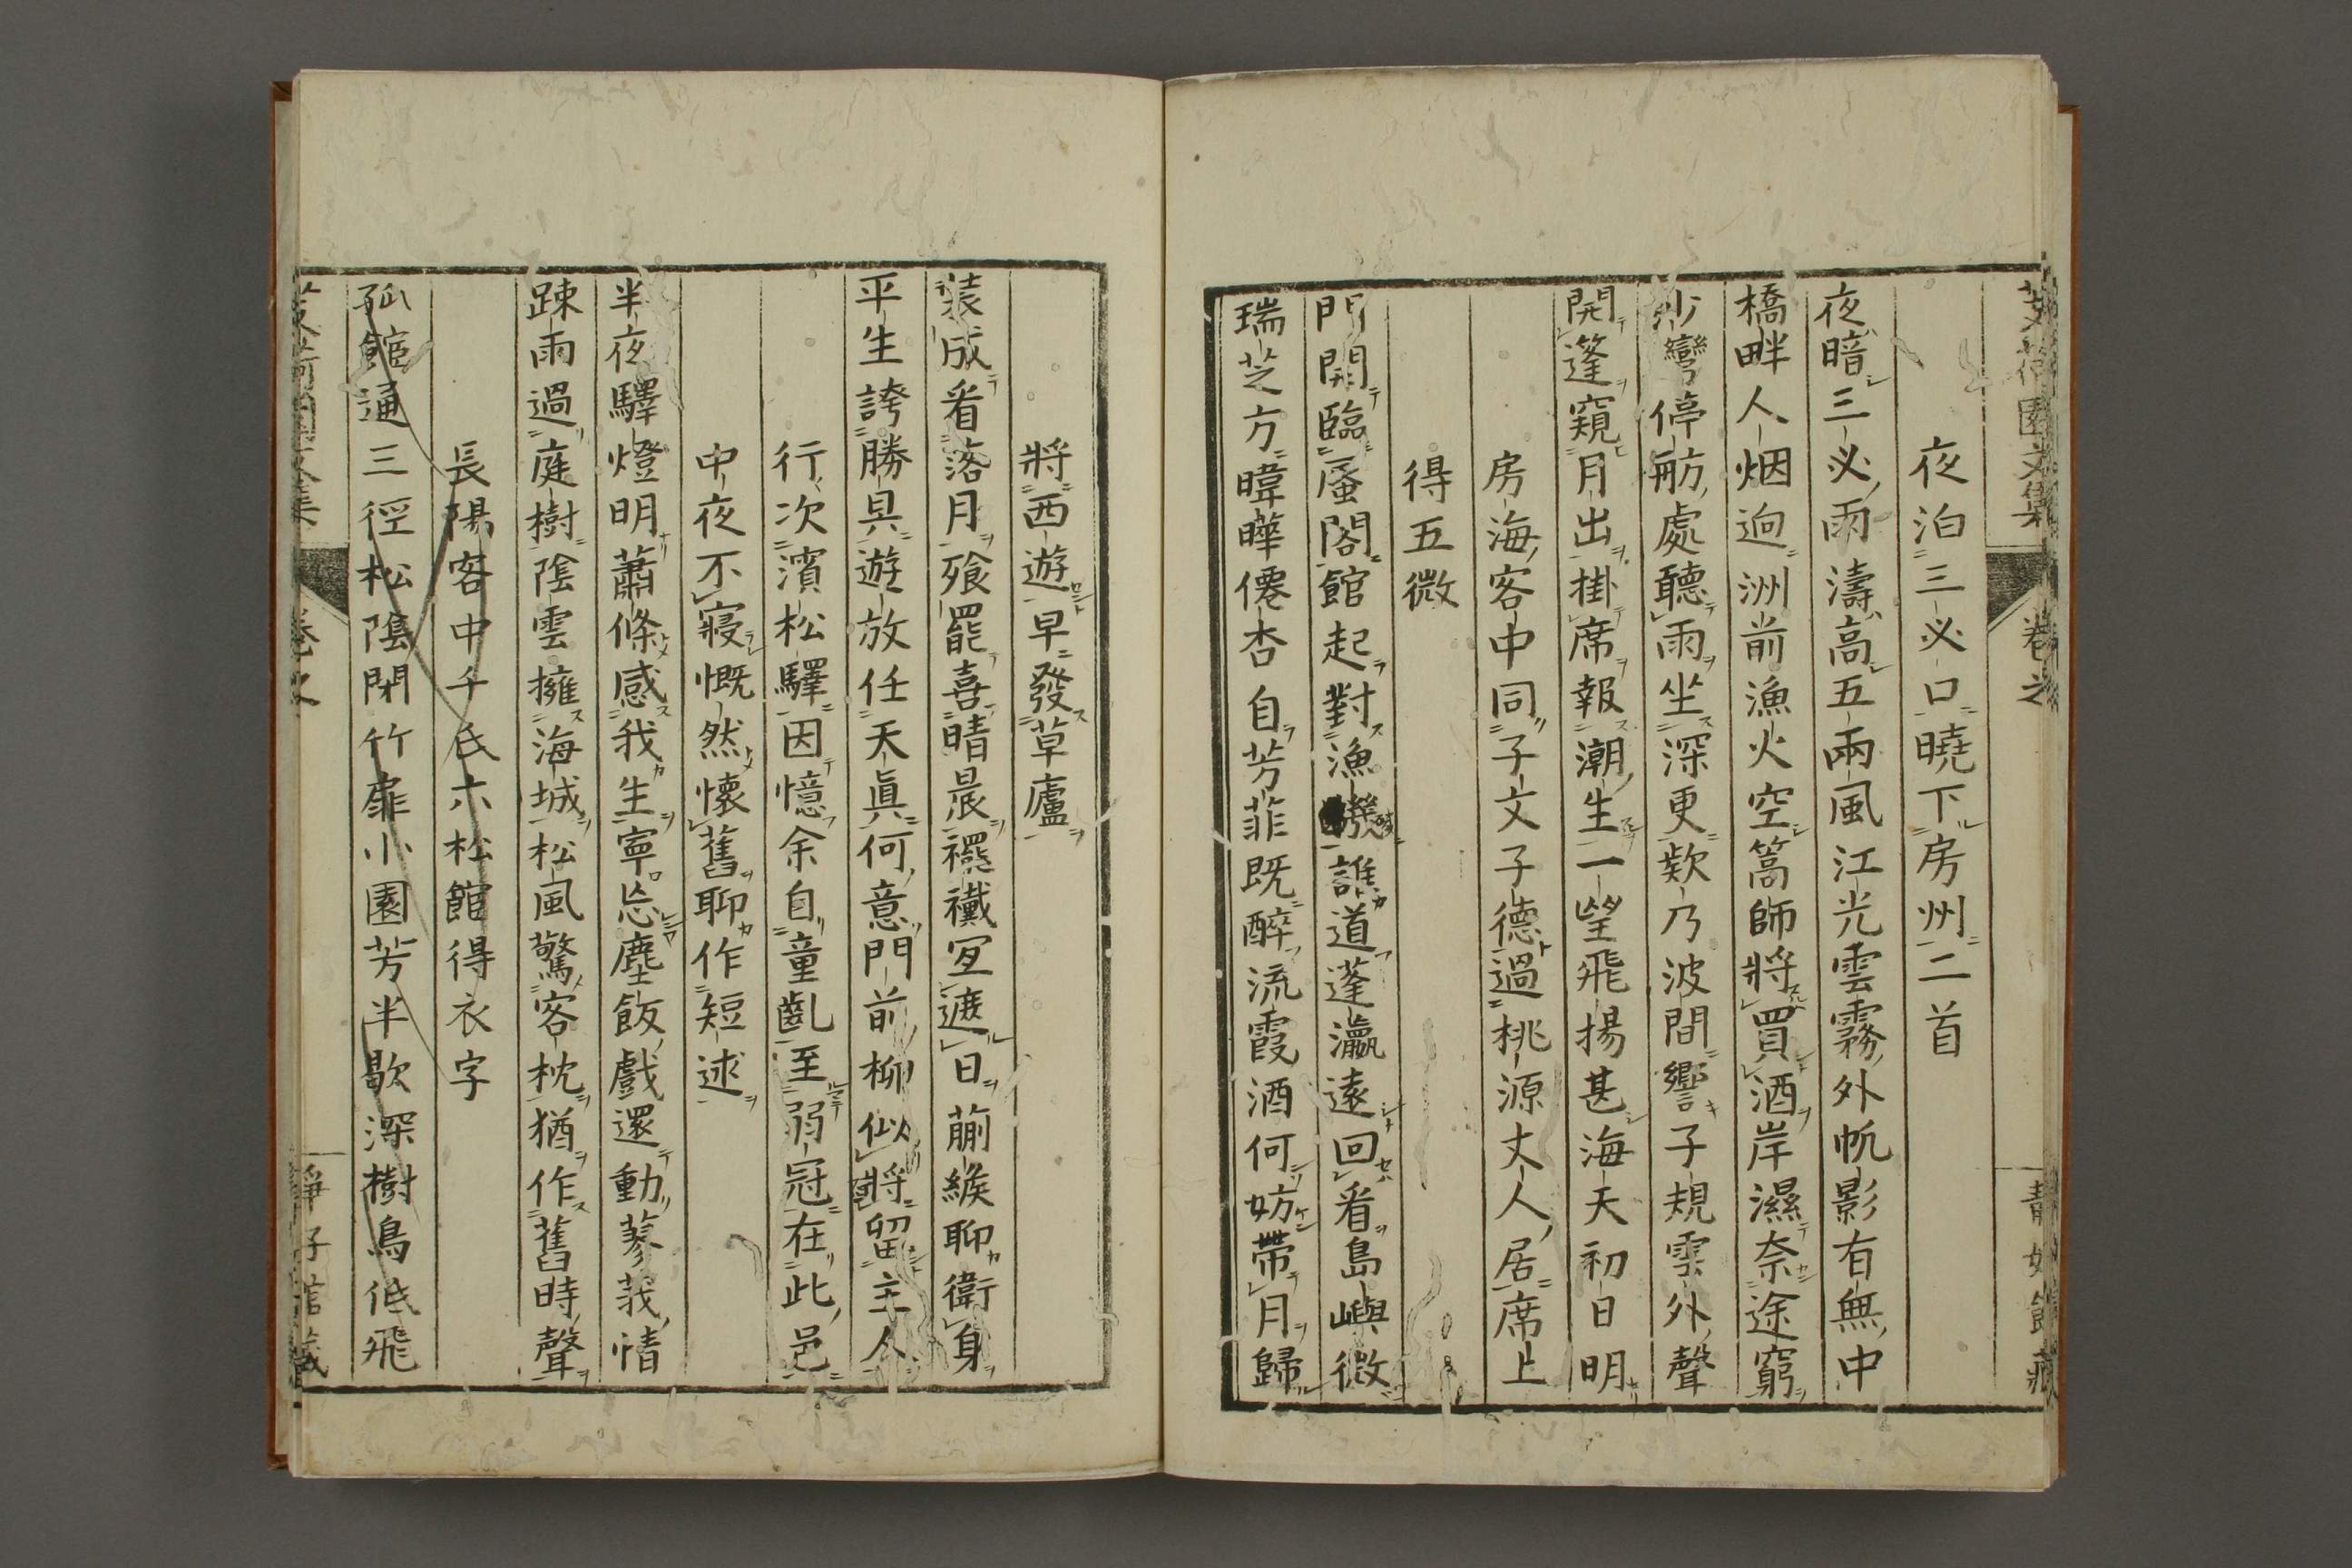 芰荷園文集 卷之 靜好館藏
夜泊三必口曉下房州二首
夜暗三必雨濤高五兩風江光雲霧外帆影有無中
橋畔人烟迥洲前漁火空篙師將買酒岸濕奈途窮
沙彎停舫處聽雨坐深更欵乃波間響子規雲外聲
開篷窺月出掛席報潮生一望飛揚甚海天初日明
房海客中同子文子德過桃源丈人居席上
得五微
門開臨蜃閣館起對漁磯誰道蓬瀛遠回看島嶼微
瑞芝方暐曄僊杏自芳菲既醉流霞酒何妨帶月歸
將西遊早發草廬
裝成看落月飱罷喜晴晨襏襶宜遮日蒯緱聊衛身
平生誇勝具遊放任天眞何意門前柳似將留主人
行次濱松驛因憶余自童齓至弱冠在此邑
中夜不寢慨然懷舊聊作短述
半夜驛燈明蕭條感我生寧忘塵飯戲還動蓼莪情
踈雨過庭樹陰雲擁海城松風驚客枕猶作舊時聲
長陽客中千氏六松館得衣字
孤館通三徑松陰閉竹扉小園芳半歇深樹鳥低飛
芰荷園文集 卷之 靜好館藏